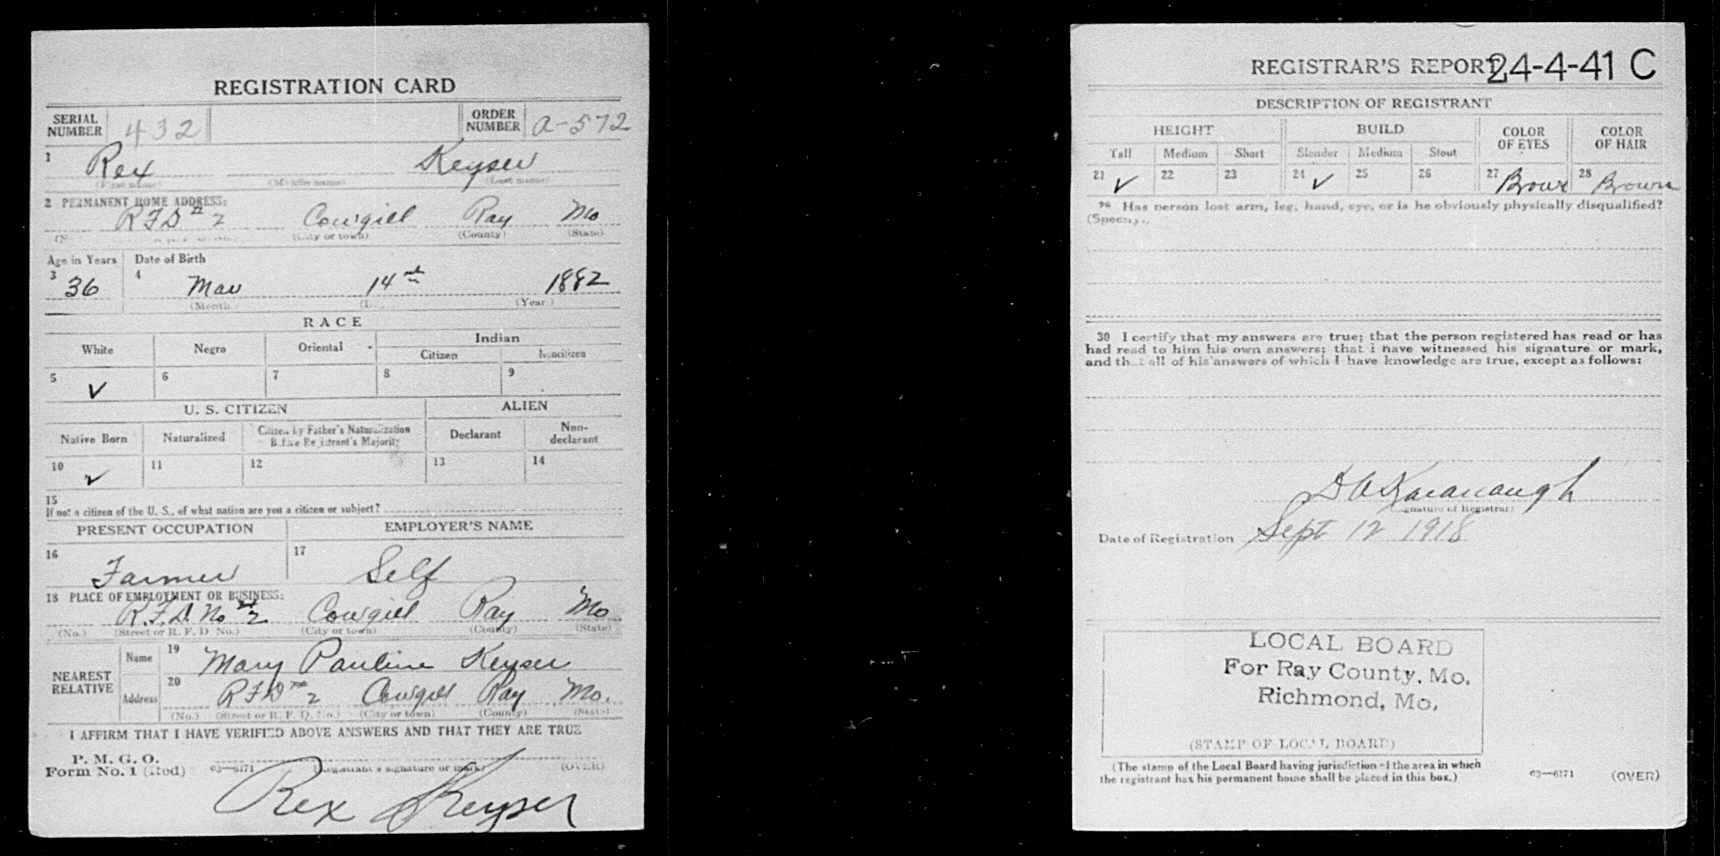 REGISTRATION CARD
SERIAL NUMBER 432 ORDER NUMBER A-572
1 Rex Keyser
(First name) (Middle name) (Last name)
2 PERMANENT HOME ADDRESS:
R F D # 2 Cowgill Ray Mo
(City or town) (County) (State)
Age in Years Date of Birth
3 36 4 Mar 14 1882
(Month) (Year)
RACE
White Negro Oriental Indian
Citizen Noncitizen
5 ✓ 6 7 8 9
U. S. CITIZEN ALIEN
Native Born Naturalized Citizen by Father's Naturalization Before Registrant's Majority Declarant Non-declarant
10 ✓ 11 12 13 14
15
If not a citizen of the U. S., of what nation are you a citizen or subject?
PRESENT OCCUPATION EMPLOYER'S NAME
16 Farmer 17 Self
18 PLACE OF EMPLOYMENT OR BUSINESS:
R.F.D. No 2 Cowgill Ray Mo
(No.) (Street or R. F. D. No.) (City or town) (County) (State)
NEAREST RELATIVE Name 19 Mary Pauline Keyser
Address 20 R F D No 2 Cowgill Ray Mo.
(No.) (Street or R. F. D. No.) (City or town) (County) (State)
I AFFIRM THAT I HAVE VERIFIED ABOVE ANSWERS AND THAT THEY ARE TRUE
P. M. G. O.
Form No. 1 (Red) 03—6171 (Registrant's signature or mark) (OVER)
Rex Keyser
REGISTRAR'S REPORT 24-4-41 C
DESCRIPTION OF REGISTRANT
HEIGHT BUILD COLOR OF EYES COLOR OF HAIR
Tall Medium Short Slender Medium Stout
21 ✓ 22 23 24 ✓ 25 26 27 Brown 28 Brown
29 Has person lost arm, leg, hand, eye, or is he obviously physically disqualified?
(Specify.)
30 I certify that my answers are true; that the person registered has read or has
had read to him his own answers; that I have witnessed his signature or mark,
and that all of his answers of which I have knowledge are true, except as follows:
D A Kavanaugh
(Signature of Registrar)
Date of Registration Sept 12 1918
LOCAL BOARD
For Ray County, Mo.
Richmond, Mo.
(STAMP OF LOCAL BOARD)
(The stamp of the Local Board having jurisdiction of the area in which
the registrant has his permanent home shall be placed in this box.)
03—6171 (OVER)